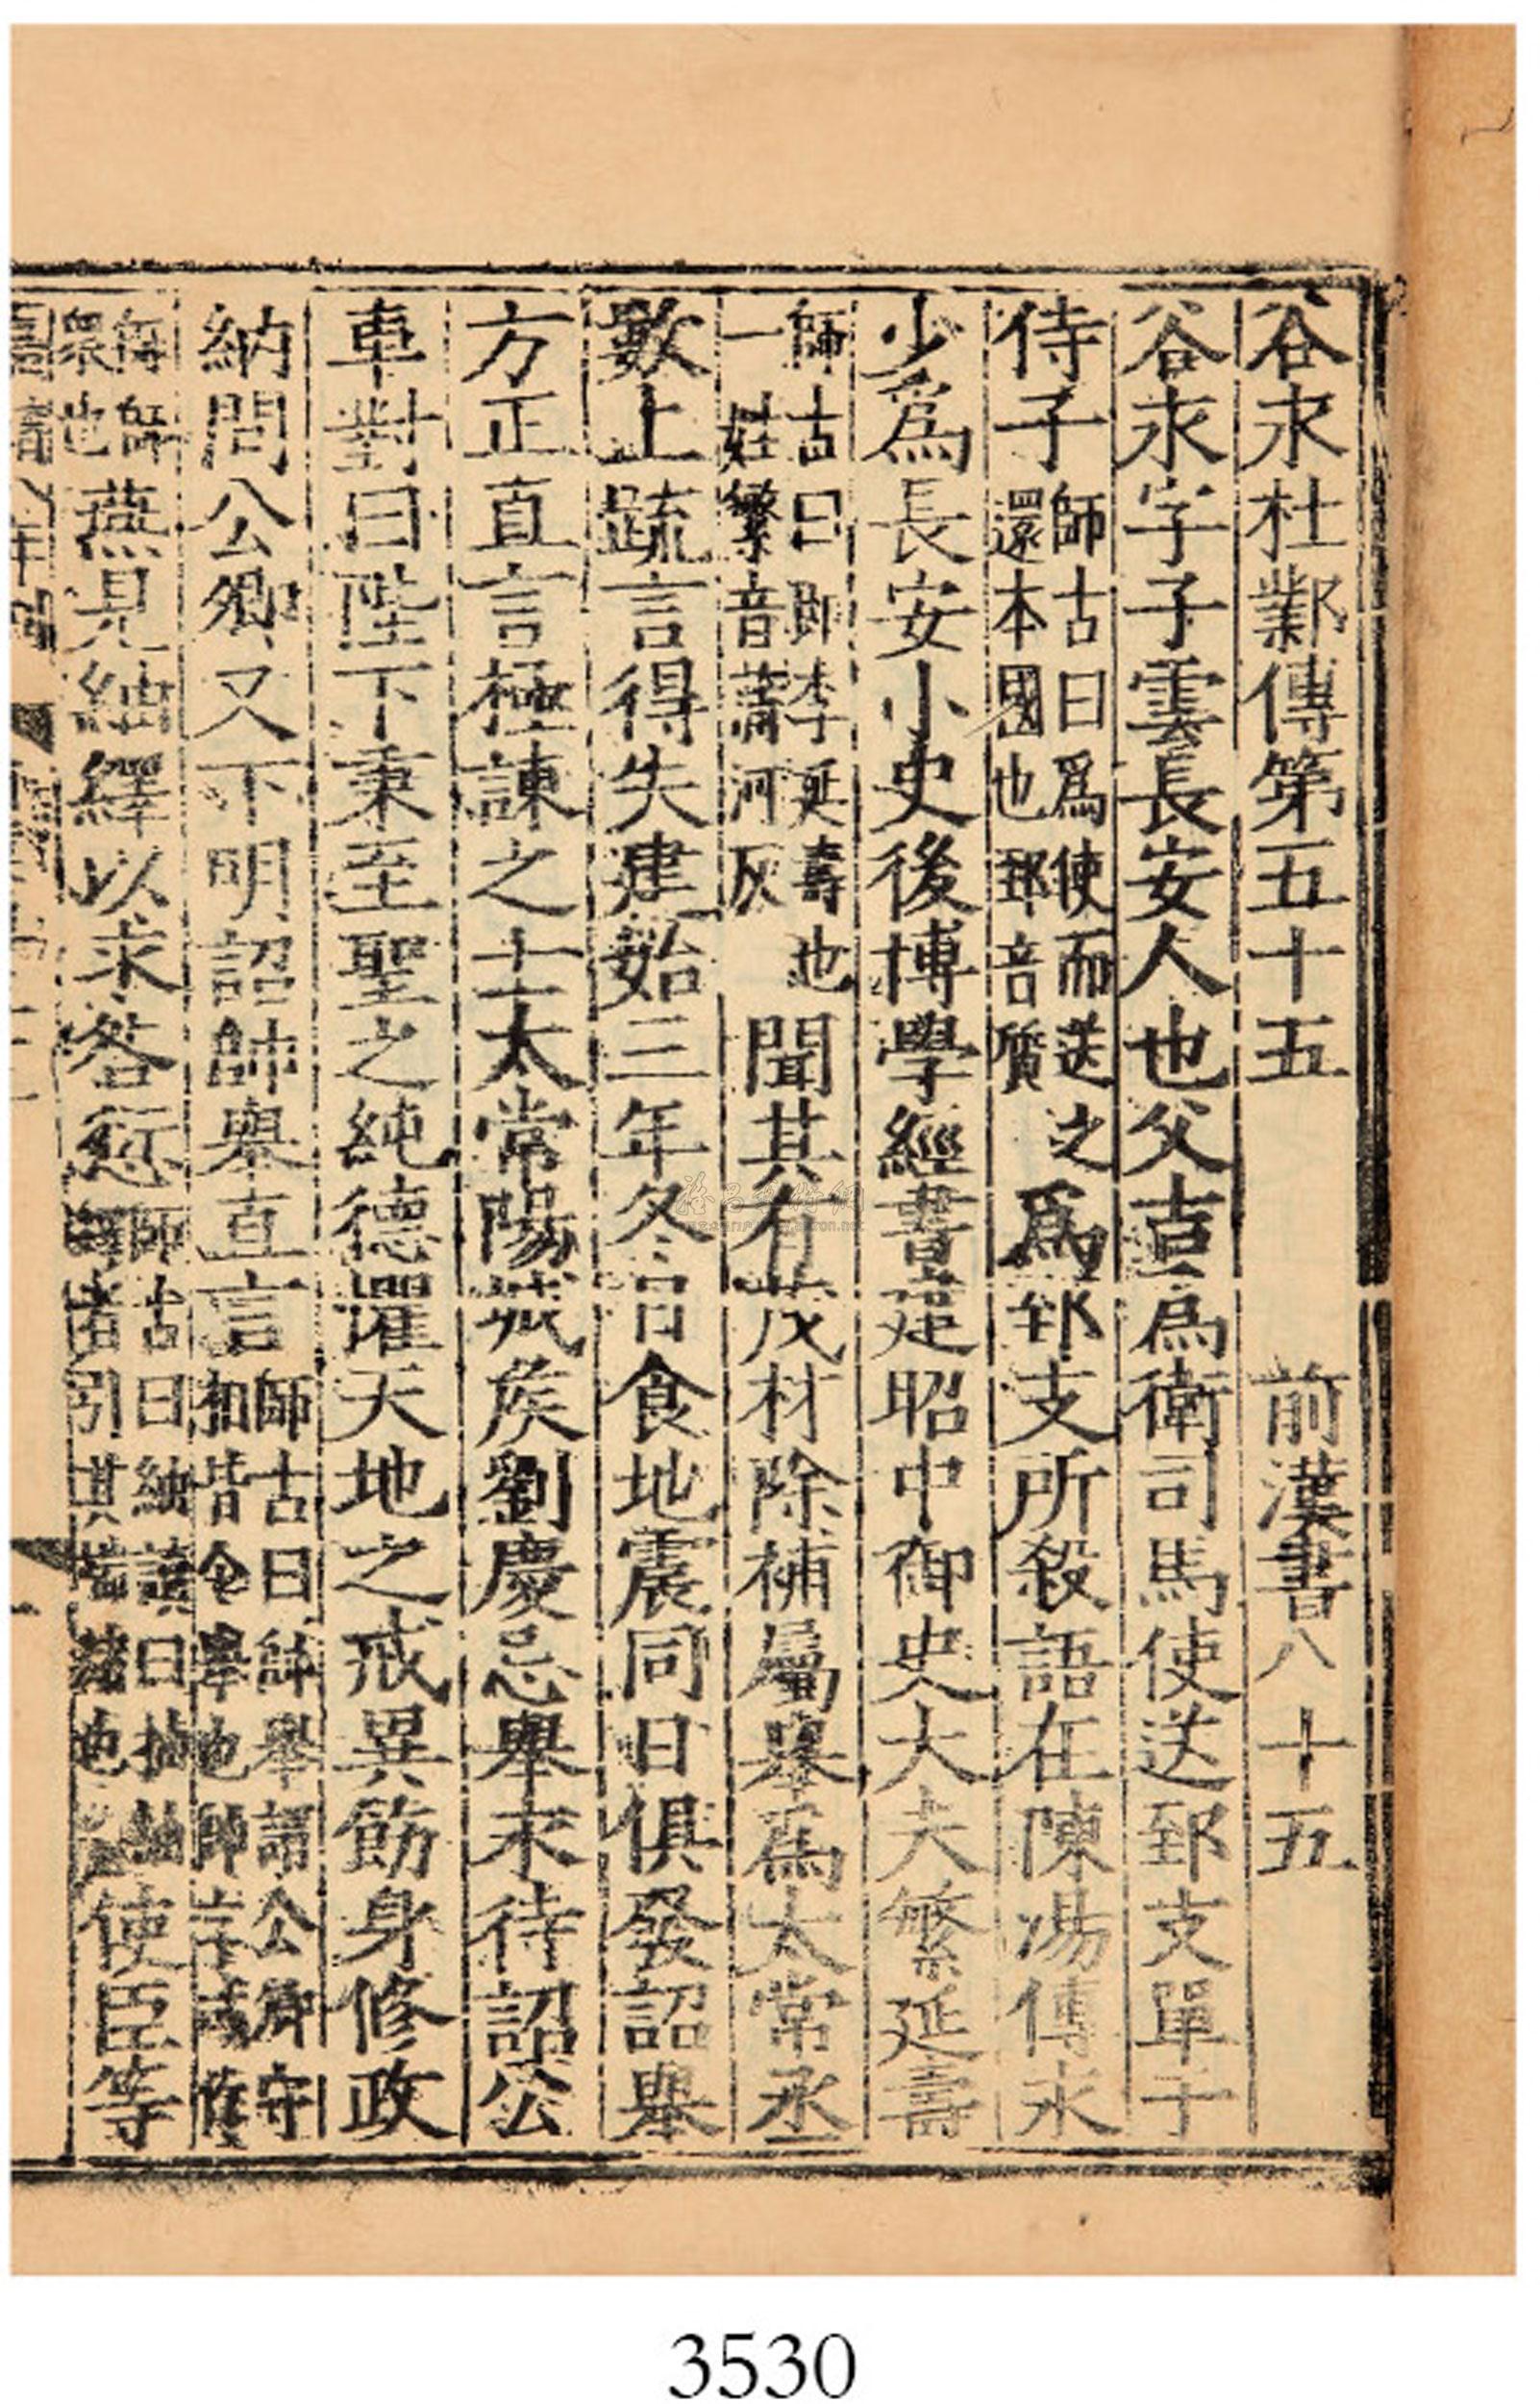 谷永杜鄴傳第五十五 前漢書八十五
谷永字子雲長安人也父吉爲衛司馬使送郅支單于
侍子師古曰爲使而送之還本國也郅音質爲郅支所殺語在陳湯傳永
少爲長安小史後博學經書建昭中御史大夫繁延壽
師古曰即李延壽也一姓繁音蒲河反聞其有茂材除補屬舉爲太常丞
數上疏言得失建始三年冬日食地震同日俱發詔舉
方正直言極諫之士太常陽城侯劉慶忌舉永待詔公
車對曰陛下秉至聖之純德懼天地之戒異飭身修政
納問公卿又下明詔帥舉直言師古曰帥舉謂公卿守相皆令舉也帥
燕見紬繹以求咎愆師古曰紬讀曰抽紬繹者引其端緒也使臣等
3530